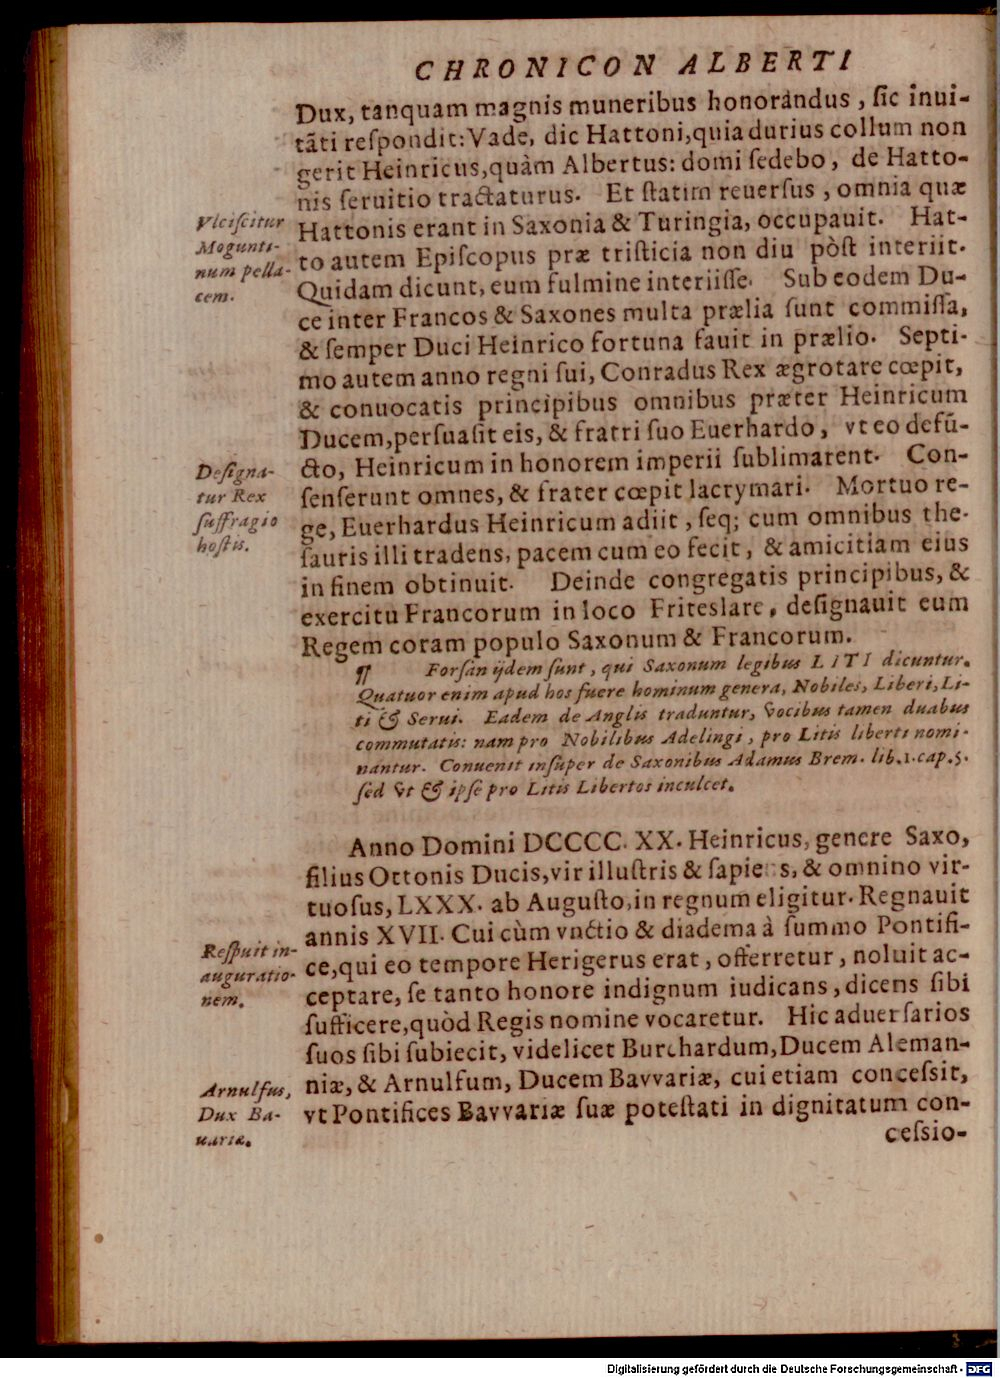 CHRONICON ALBERTI
Dux, tanquam magnis muneribus honorandus, ſic inui-
tāti reſpondit: Vade, dic Hattoni, quia durius collum non
gerit Heinricus, quàm Albertus: domi ſedebo, de Hatto-
nis ſeruitio tractaturus. Et ſtatim reuerſus, omnia quæ
Hattonis erant in Saxonia & Turingia, occupauit. Hat-
to autem Epiſcopus præ triſticia non diu pòſt interiit.
Quidam dicunt, eum fulmine interiiſſe. Sub eodem Du-
ce inter Francos & Saxones multa prælia ſunt commiſſa,
& ſemper Duci Heinrico fortuna fauit in prælio. Septi-
mo autem anno regni ſui, Conradus Rex ægrotare cœpit,
& conuocatis principibus omnibus præter Heinricum
Ducem, perſuaſit eis, & fratri ſuo Euerhardo, vt eo defū-
cto, Heinricum in honorem imperii ſublimarent. Con-
ſenſerunt omnes, & frater cœpit lacrymari. Mortuo re-
ge, Euerhardus Heinricum adiit, ſeq; cum omnibus the-
ſauris illi tradens, pacem cum eo fecit, & amicitiam eius
in finem obtinuit. Deinde congregatis principibus, &
exercitu Francorum in loco Friteslare, deſignauit eum
Regem coram populo Saxonum & Francorum.
Vlciſcitur
Mogunti-
num pella-
cem.
Deſigna-
tur Rex
ſuffragio
hoſtis.
¶ Forſan ijdem ſunt, qui Saxonum legibus LITI dicuntur.
Quatuor enim apud hos fuere hominum genera, Nobiles, Liberi, Li-
ti & Serui. Eadem de Anglis traduntur, vocibus tamen duabus
commutatis: nam pro Nobilibus Adelingi, pro Litis liberti nomi-
nantur. Conuenit inſuper de Saxonibus Adamus Brem. lib. 1. cap. 5.
ſed vt & ipſe pro Litis Libertos inculcet.
Anno Domini DCCCC. XX. Heinricus, genere Saxo,
filius Ottonis Ducis, vir illuſtris & ſapiens, & omnino vir-
tuoſus, LXXX. ab Auguſto, in regnum eligitur. Regnauit
annis XVII. Cui cùm vnctio & diadema à ſummo Pontifi-
ce, qui eo tempore Herigerus erat, offerretur, noluit ac-
ceptare, ſe tanto honore indignum iudicans, dicens ſibi
ſufficere, quòd Regis nomine vocaretur. Hic aduerſarios
ſuos ſibi ſubiecit, videlicet Burchardum, Ducem Aleman-
niæ, & Arnulfum, Ducem Bavvariæ, cui etiam conceſsit,
vt Pontifices Bavvariæ ſuæ poteſtati in dignitatum con-
ceſsio-
Reſpuit in-
auguratio-
nem.
Arnulfus,
Dux Ba-
uariæ.
Digitalisierung gefördert durch die Deutsche Forschungsgemeinschaft - DFG